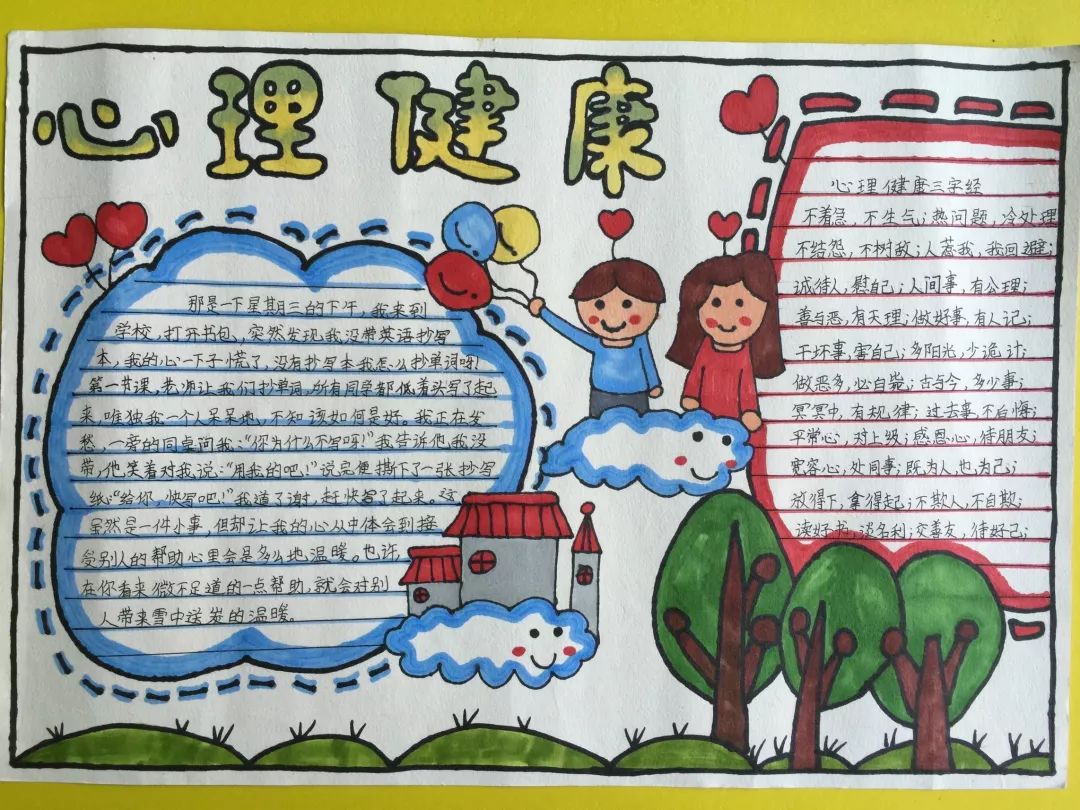 心理健康
那是一下星期三的下午，我来到
学校，打开书包，突然发现我没带英语抄写
本，我的心一下子慌了，没有抄写本我怎么抄单词呀！
第一节课，老师让我们抄单词，所有同学都低着头写了起
来，唯独我一个人呆呆地，不知该如何是好。我正在发
愁，一旁的同桌问我：“你为什么不写呀！”我告诉他我没
带，他笑着对我说：“用我的吧！”说完便撕下了一张抄写
纸：“给你，快写吧！”我道了谢，赶快写了起来。这
虽然是一件小事，但却让我的心从中体会到接
受别人的帮助心里会是多么地温暖。也许，
在你看来微不足道的一点帮助，就会对别
人带来雪中送炭的温暖。
心理健康三字经
不着急，不生气；热问题，冷处理
不结怨，不树敌；人惹我，我回避；
诚待人，慰自己；人间事，有公理；
善与恶，有天理；做好事，有人记；
干坏事，害自己；多阳光，少诡计；
做恶多，必自毙；古与今，多少事；
冥冥中，有规律；过去事，不后悔；
平常心，对上级；感恩心，待朋友；
宽容心，处同事；既为人，也为己；
放得下，拿得起；不欺人，不自欺；
读好书，淡名利；交善友，待好己；